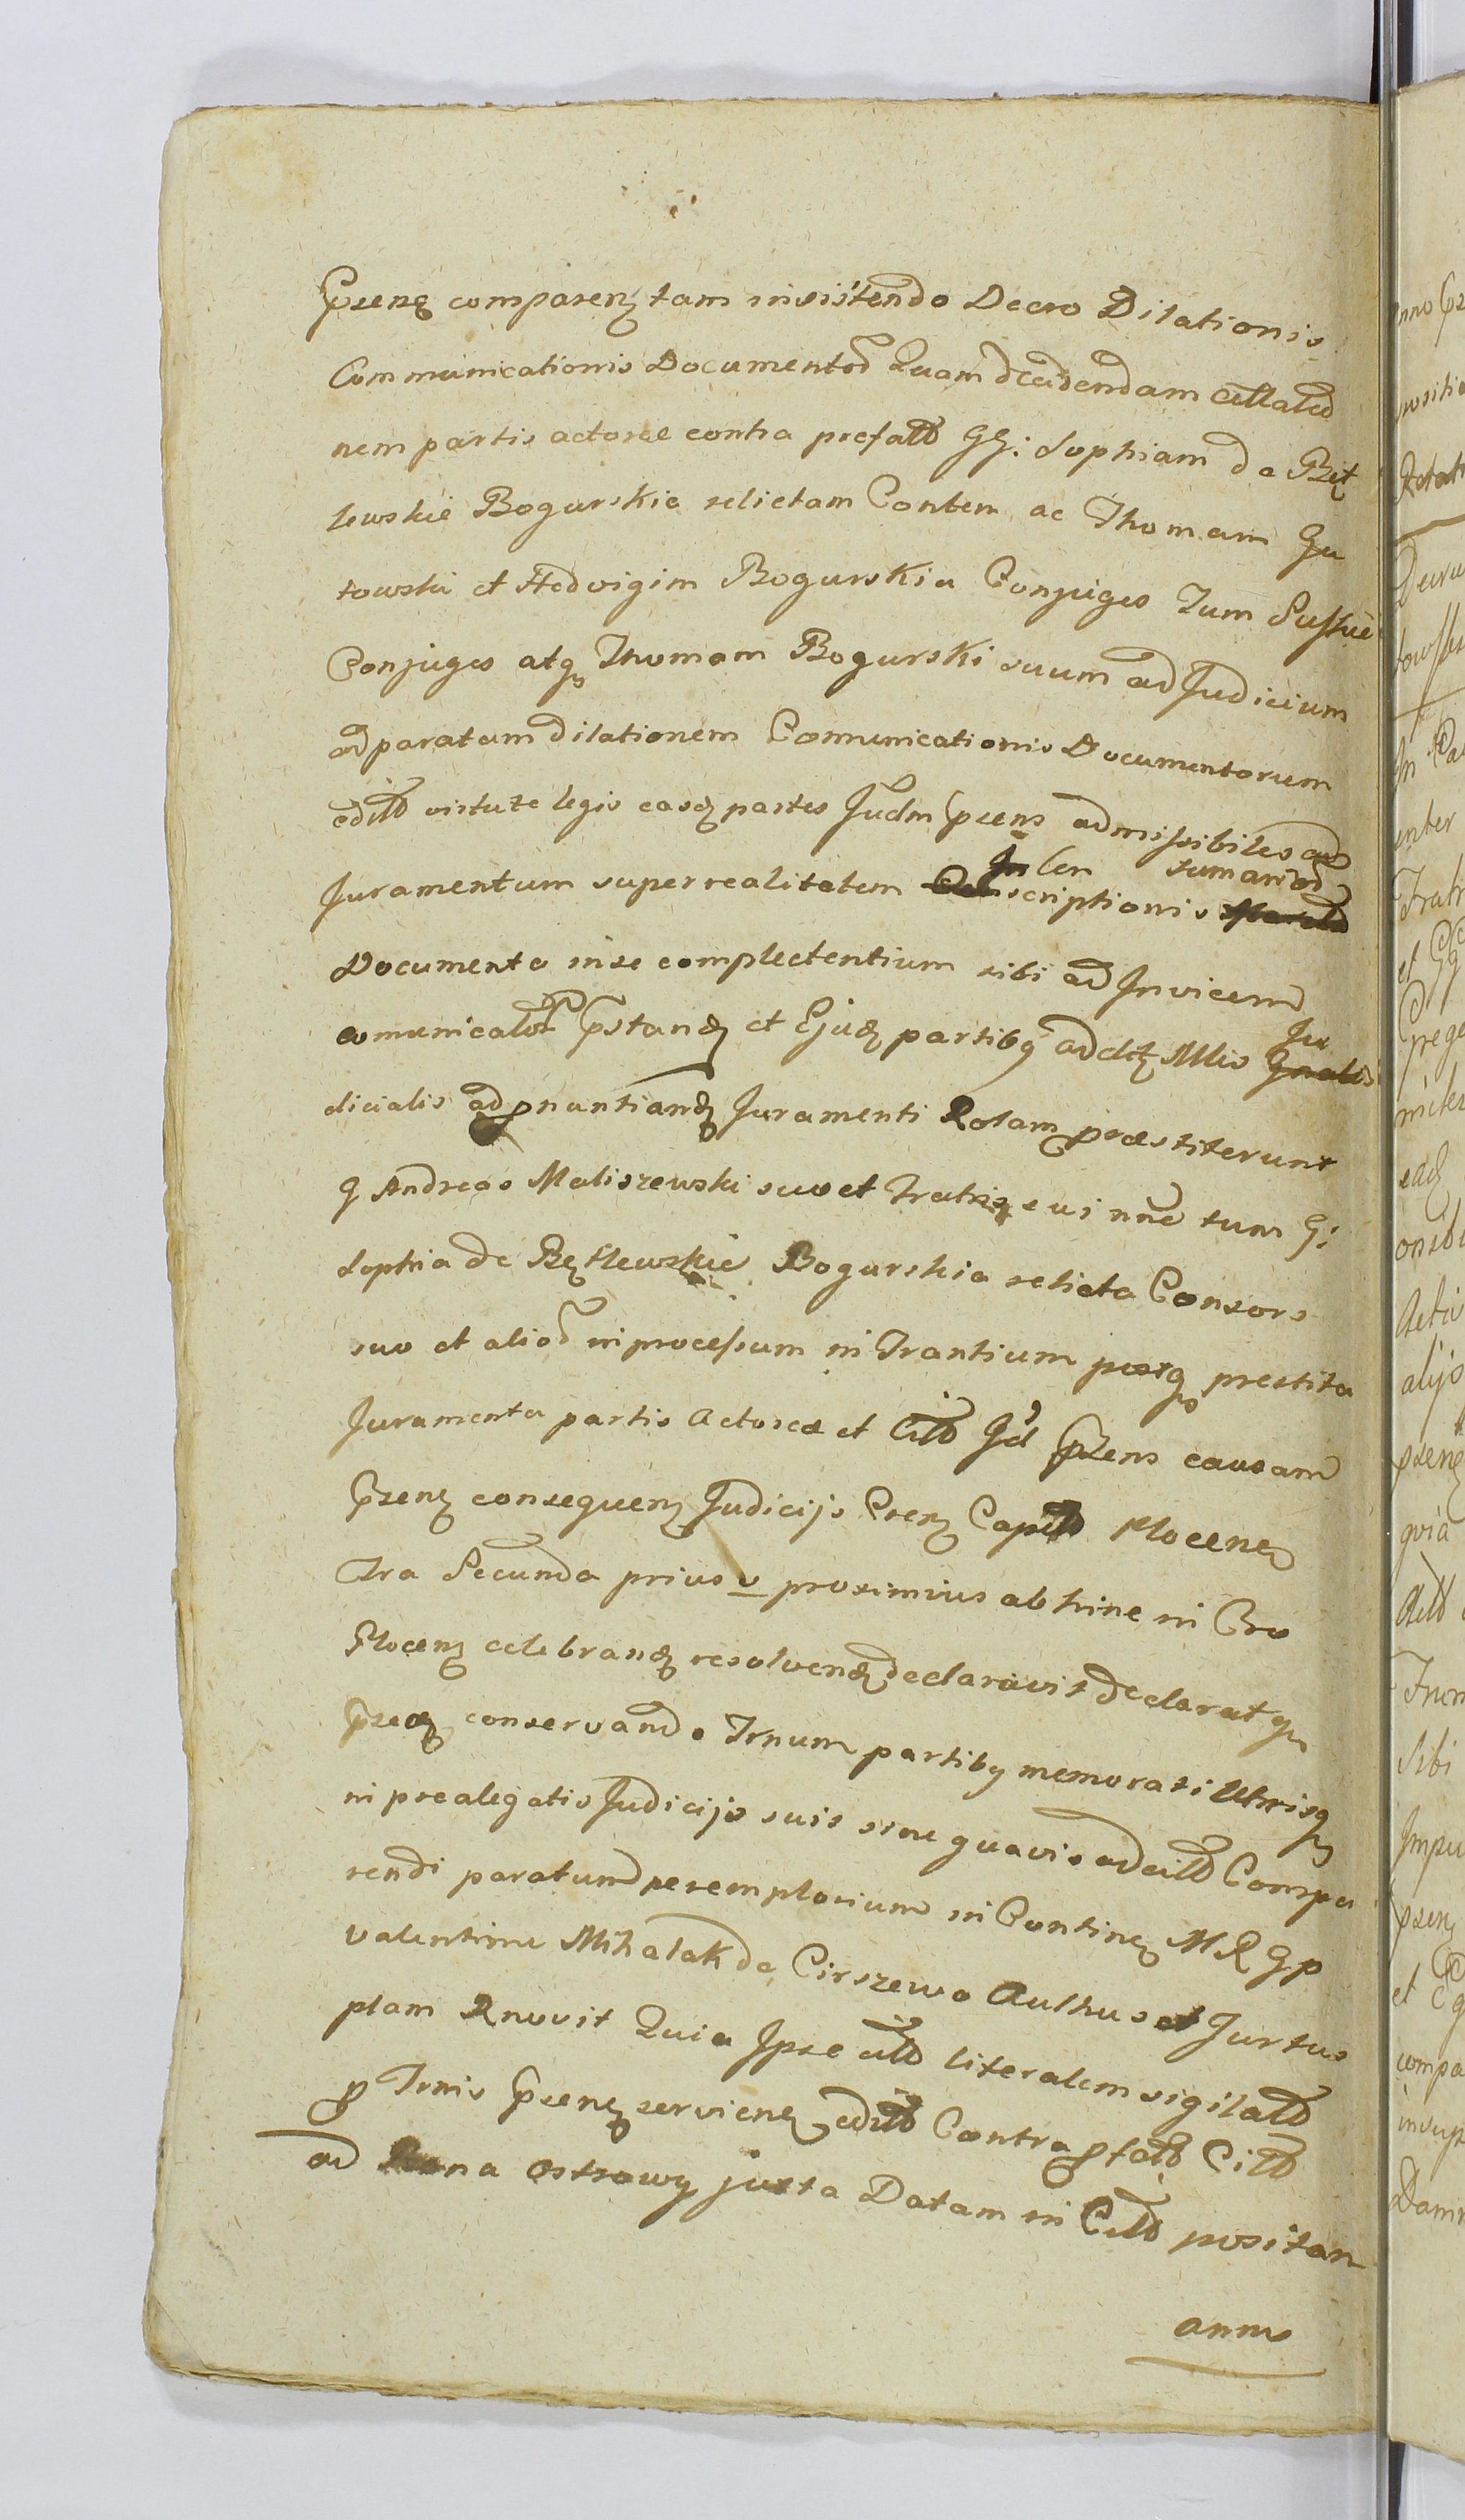 Prsenz comparenz tam insistendo Decro Dilationis
Communicationis Documentor Quam decidendam citatio
nem partis actoree contra prefatt GG: Sophiam de Bęt
lewskie Bogurskie relictam Contem ac Thomam Gu
towski et Hedvigim Bogurskia Conjuges Tum Susskie
Conjuges atq Thomam Bogurski suum ad Judicium
ad paratam dilationem Comunicationis Documentorum
editt virtute legis easq partes Judm Prens admissibiles ad
Juramentum super realitatem In len scriptionis sumarior
Documenta in se complectentium sibi ad Invicem
comunicator Pstand et Ejusd partibq addtt Mlis Ju
dicialis ad pnuntiand Juramenti Rotam præstiterunt
G Andreas Maliszewski suo et Fratris sui nne tum G:
Sophia de Bętlewskie Bogurskia relicta Consors
suo et alior in processum in Trantium postq prestita
Juramenta partis Actoreæ et Citt Jd Prens causam
Prsenz consequenz Judicijs Crenz Capitt Plocenz
Fra Secunda prius v proximius ab hinc in Cro
Plocenz celebrand resolvend declaravit declaratq
Prseq conservando Trnum partibq memorati Utrisq
in prealegatis Judicijs suis sine quavis adcitt Compa
rendi paratum peremptorium in Continez M R G p
Valentinu Mihalak de Cirszewo Authus et Jurtus
ptam Rnovit Quia Ipse citt literalem sigilatt
p Trnis Prsenz servienz editt Contra pfatt Citt
ad Bona Ostrowy juxta Datam in Citt positam
anno